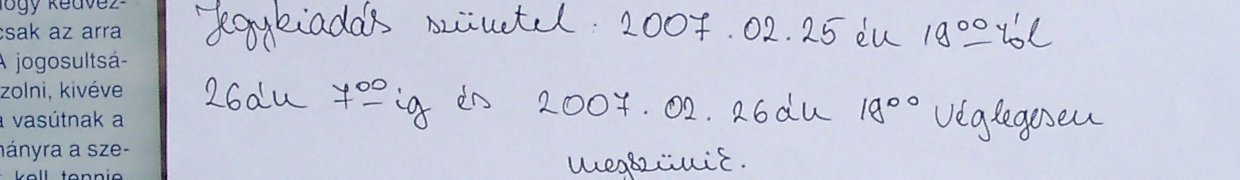 ogy kedvez-
csak az arra
A jogosultsá-
zolni, kivéve
a vasútnak a
mányra a sze-
kell tennie
Jegykiadás szünetel : 2007.02.25 én 19⁰⁰ tól
26án 7⁰⁰ ig és 2007.02.26án 19⁰⁰ véglegesen
megszünik.